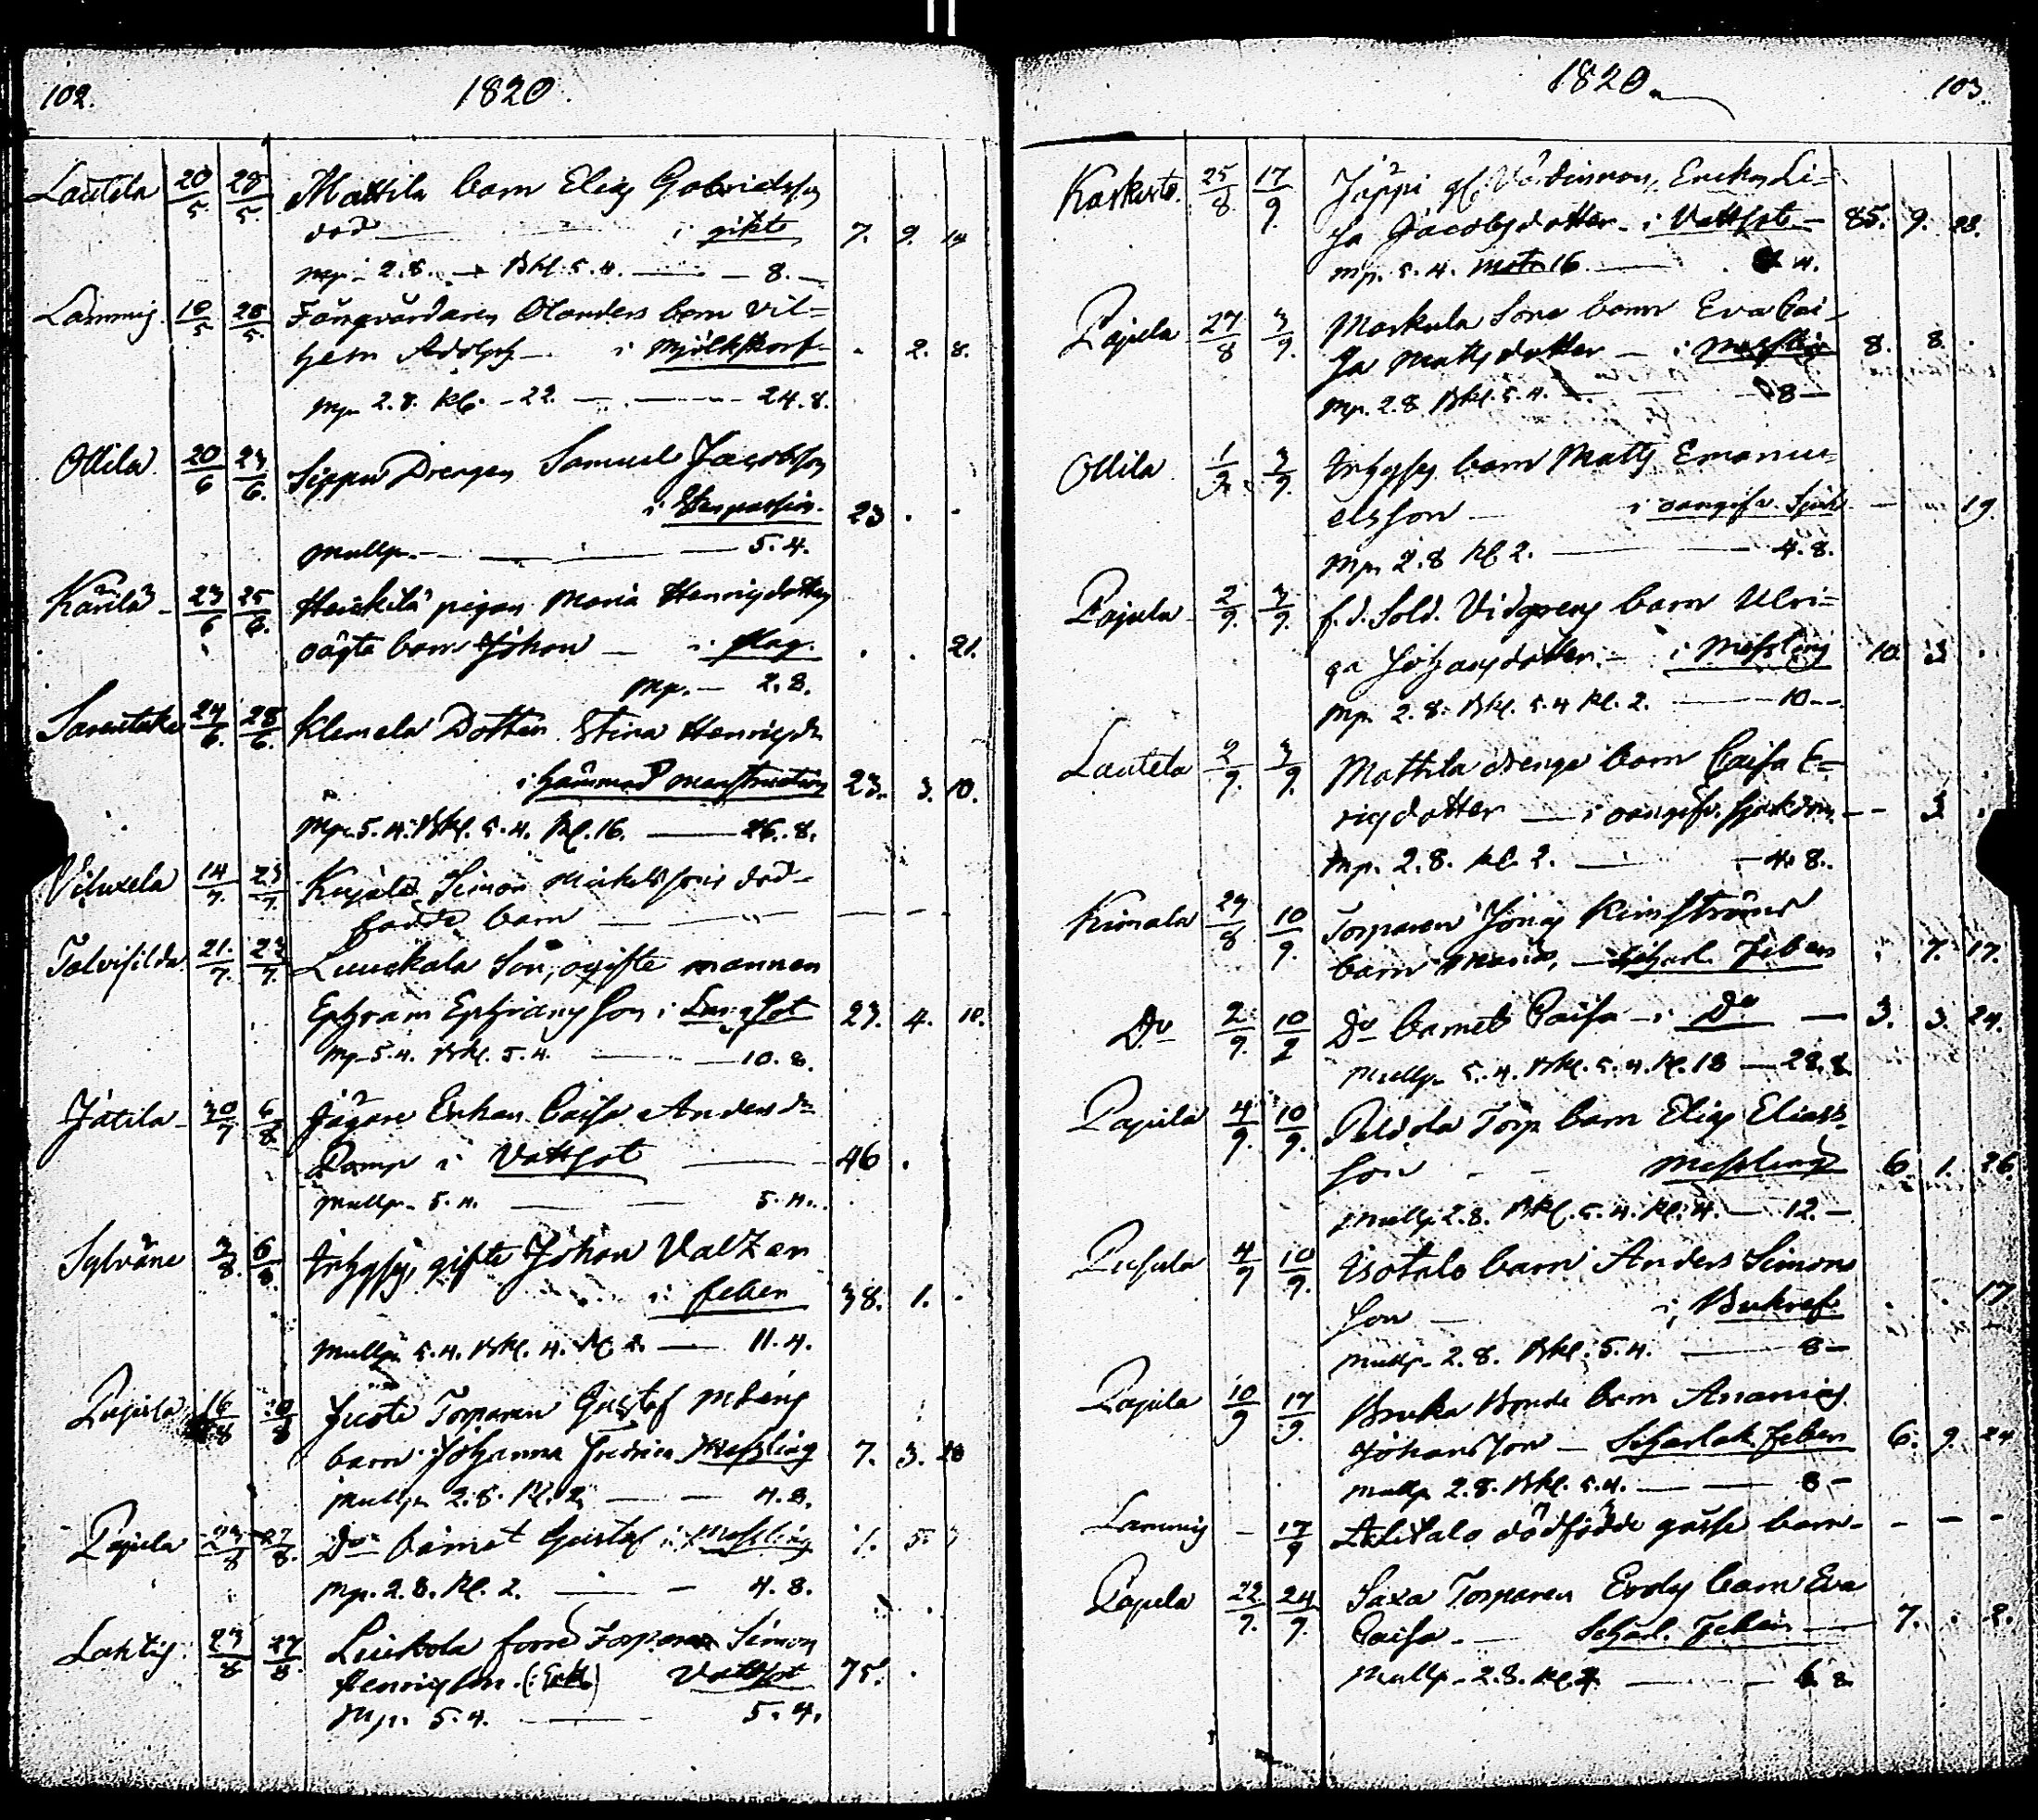 102. 1820.
Lautela 20/5 28/5. Mattila barn Elias Gabrielsson
död i gikt 7. 9. 14
Mp. 2.8. Bkl. 5.4. 8.
Lammis 18/5 28/5. Fångvårdaren Olanders barn Vil=
helm Adolph i Mjölkskorf . 2. 8.
Mp. 2.8. Kl. 22. 24.8.
Ollila 20/6 23/6. Sippu Drengen Samuel Jacobsson
i 23 . .
Mullp. 5.4.
Kärilä 23/6 25/6. Heickilä pigan Maria Henricsdotters
oägta barn Johan i slag. . . 21.
Mp. 2.8.
24/6. 28/6. Klemela Dottren Stina Henricsdr
i hämmad menstruation 23. 3. 10.
Mp. 5.4. Bkl. 5.4. Kl. 16. 26.8.
Viluxela 14/7. 23/7. Kujala Simon Mickelssons död=
födde barn
Talvisilda 21/7. 23/7. Luuckala Son, ogifte mannen
Ephraim Ephraimsson i Lungsot 23. 4. 10.
Mp. 5.4. Bkl. 5.4. 10.8.
Jätilä 30/7 6/8 Jägare Enkan Caisa Andersdr
Ramp i Vattsot 46 .
Mullp. 5.4. 5.4.
Sylväne 3/8. 6/8. Inhyses, gifte Johan Valzen
i feber 38. 1. .
Mullp. 5.4. Bkl. 4. Kl. 2. 11.4.
Papula 16/8 20/8 Juoti Torparen Gustaf
barn Johanna Fredrica Messling 7. 3. 28
Mullp. 2.8. Kl. 2. 4.8.
Papula 23/8 27/8. Do barnet Gustaf i Messling 1. 5.
Mp. 2.8. Kl. 2. 4.8.
Lahtis 23/8 27/8. Luckola förre Torparen Simon
Henricsson (: Enkl.) Vattsot 75. .
Mp. 5.4. 5.4.
1820. 103.
Karkusto. 25/8 17/9. Jäppi gl. Värdinnan, Enckan Li=
sa Jacobsdotter i Vattsot 85. 9. 28.
Mp. 5.4. 16. 4.
Papula 27/8 3/9. Markula Sons barn Eva Cai=
sa Matsdotter i Messling 8. 8. .
Mp. 2.8 Bkl. 5.4. 8
Ollila 1/9. 3/9. Inhyses barn Mats Emanu=
elsson i oangifv. Sjuk 19.
Mp. 2.8 Kl. 2. 4.8.
Papula 2/9. 3/9. f.d. Sold. Vidgrens barn Ulri=
ca Johansdotter. i Messling 10. 3 .
Mp. 2.8. Bkl. 5.4 Kl. 2. 10
Lautela 2/9. 3/9. Mattila drengs barn Caisa E=
ricsdotter i oangifv. sjukdom. 3 .
Mp. 2.8. Kl. 2. 4.8.
Kimala 29/8 10/9. Torparen Jonas Rimströms
barn Maria, Scharl. Feber . 7. 17.
Do 2/9. 10/9 Do barnet Caisa i Do 3. 3. 24.
Mullp. 5.4. Bkl. 5.4. Kl. 18 28.8
Papula 4/9. 10/9. Peldola Torp. barn Elias Elias=
son Messling 6. 1. 26
Mullp. 2.8. Bkl. 5.4. Kl. 4. 12.
Pusula 4/9 10/9. Isotalo barn Anders Simons
son i Bukref . . 17
Mullp. 2.8. Bkl. 5.4. 8
Papula 10/9 17/9. Bruka Bonde barn Ananias
Johansson Scharlak. feber 6. 9. 24
Mullp. 2.8. Bkl. 5.4. 8
Lammis 17/9 Alitalo dödfödde gosse barn
Papula 22/9. 24/9. Saxa Torparen Erdys barn Eva
Caisa Scharl. Feber 7. . 2.
Mullp. 2.8. Kl. 4. 6.8